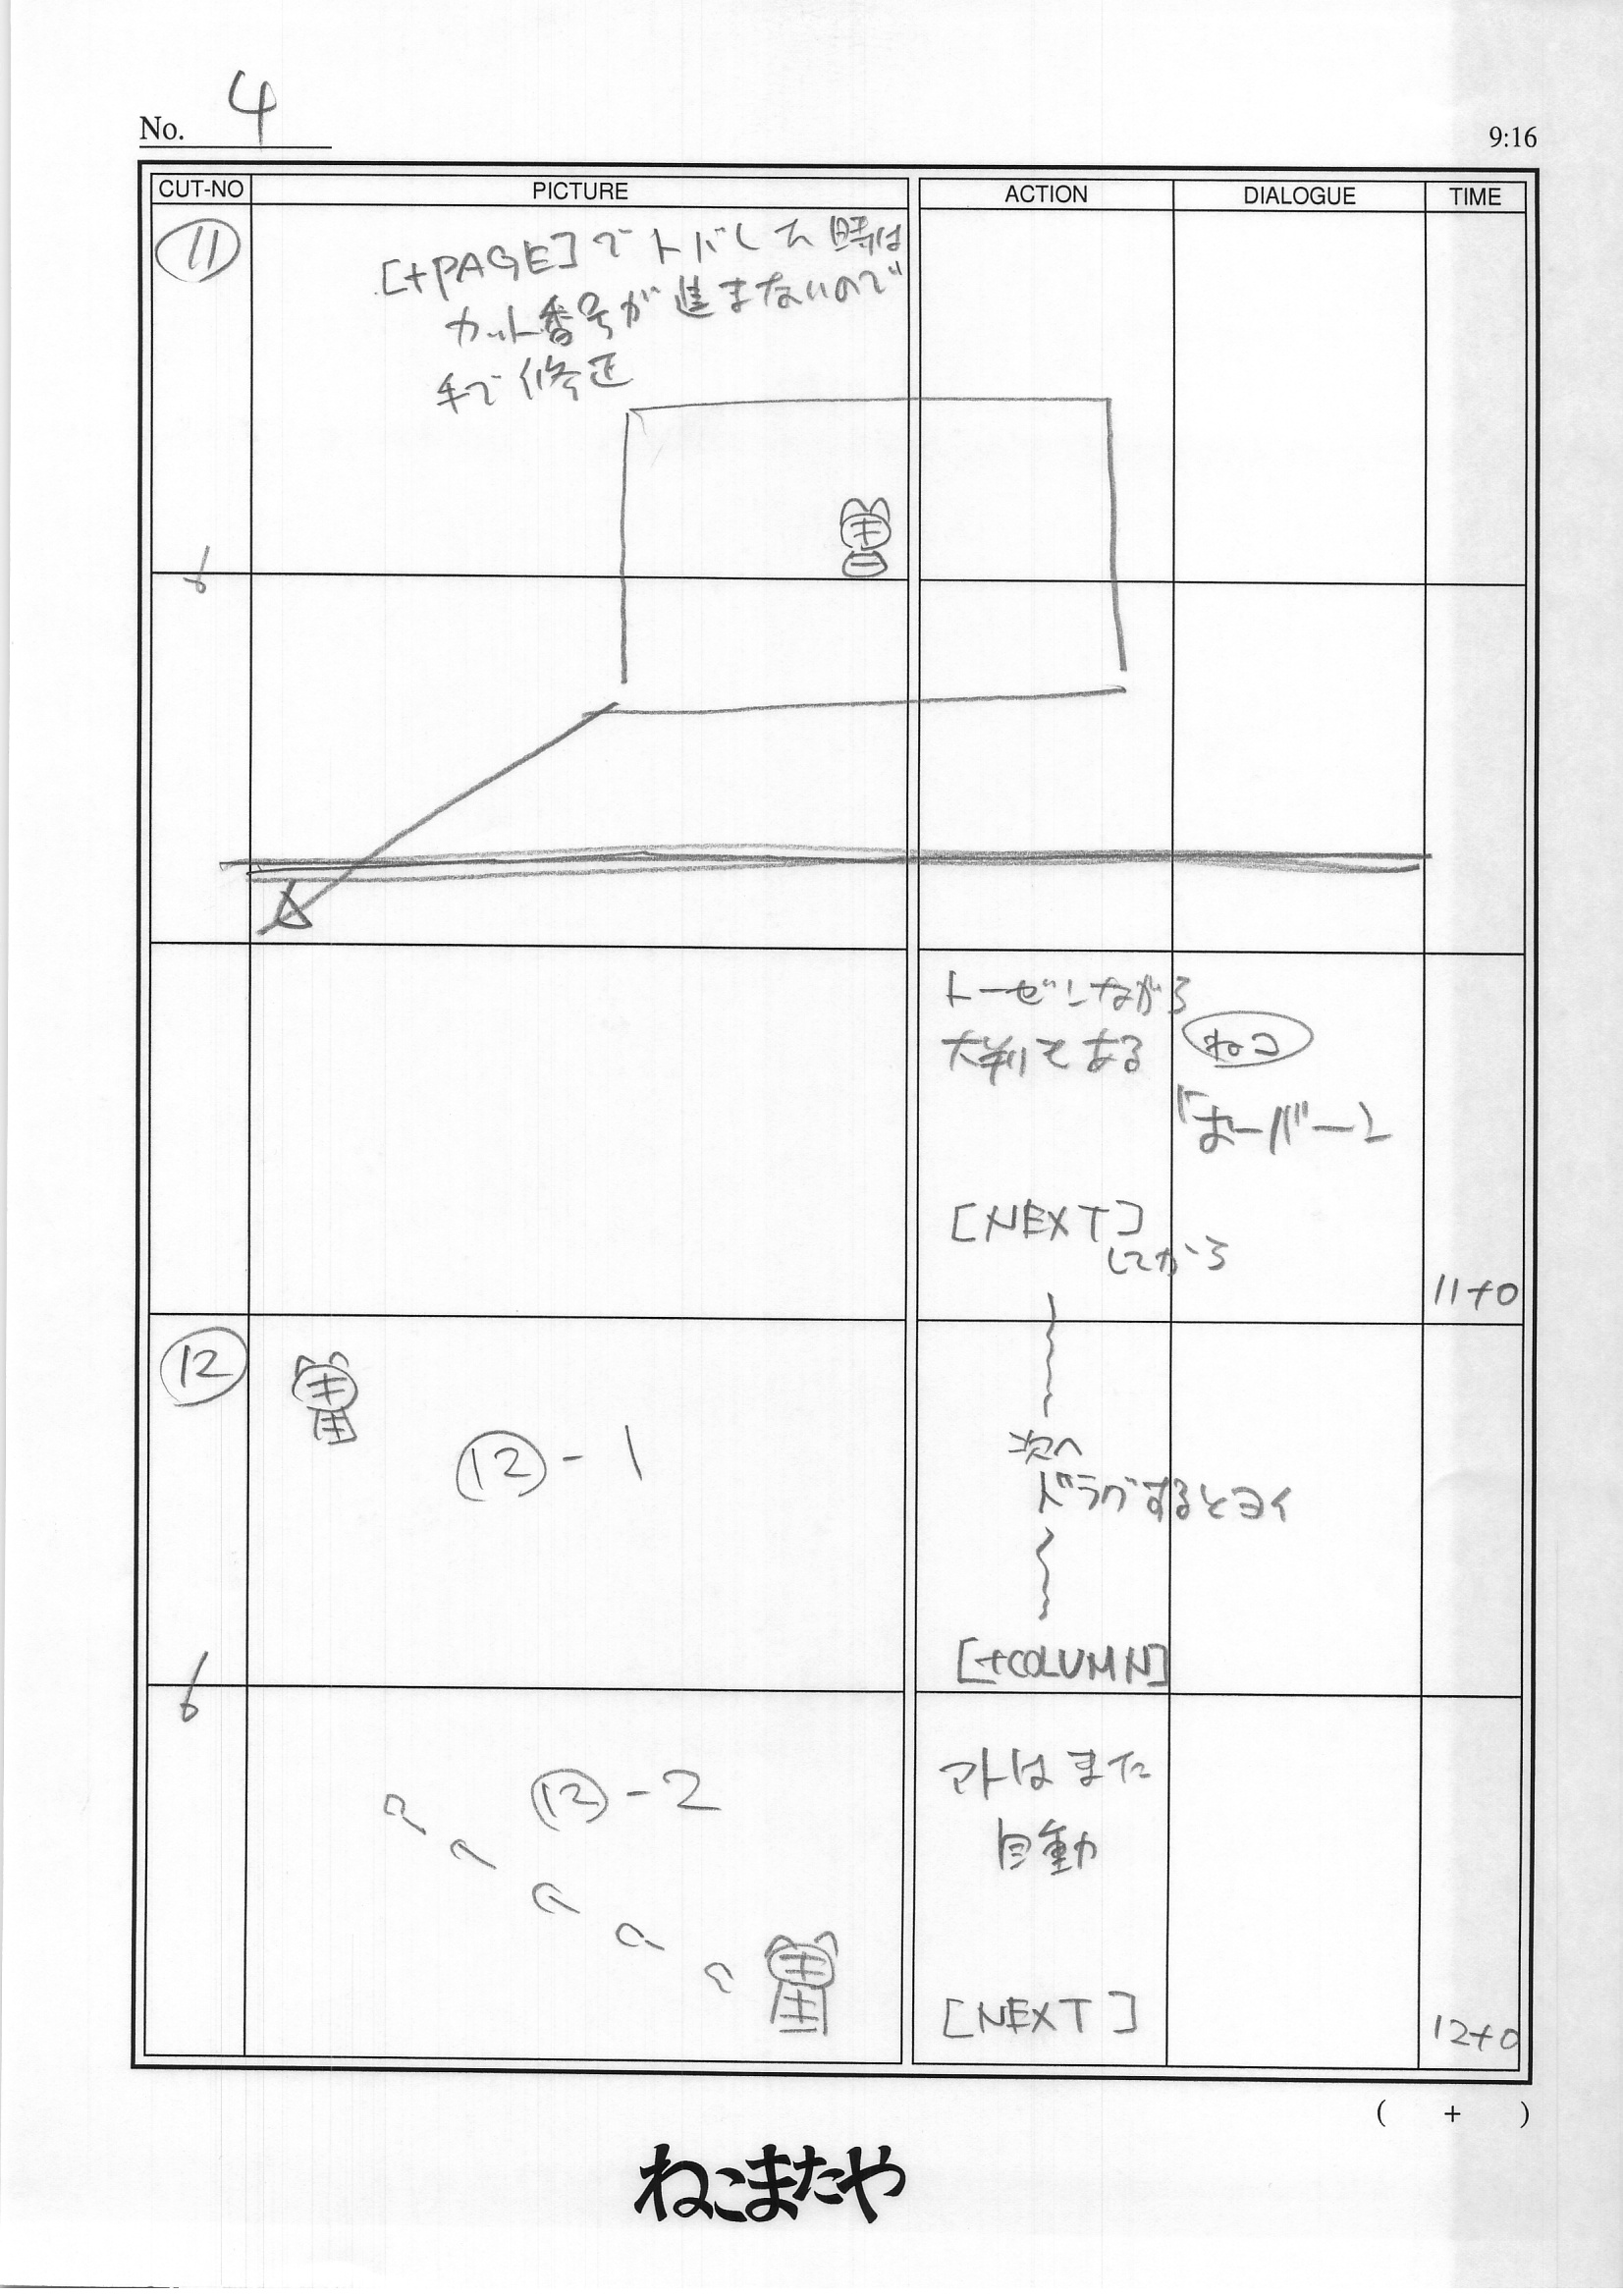 No. 4
9:16
CUT-NO
PICTURE
ACTION
DIALOGUE
TIME
11
[+PAGE]でトバした時は
カット番号が進まないので
手で修正
6
トーゼンながら
大判である
ねこ
「まーバー」
[NEXT]
してから
11+0
12
12-1
次へ
ドラグするとヨイ
[+COLUMN]
6
12-2
アトはまた
自動
[NEXT]
12+0
( + )
ねこまたや